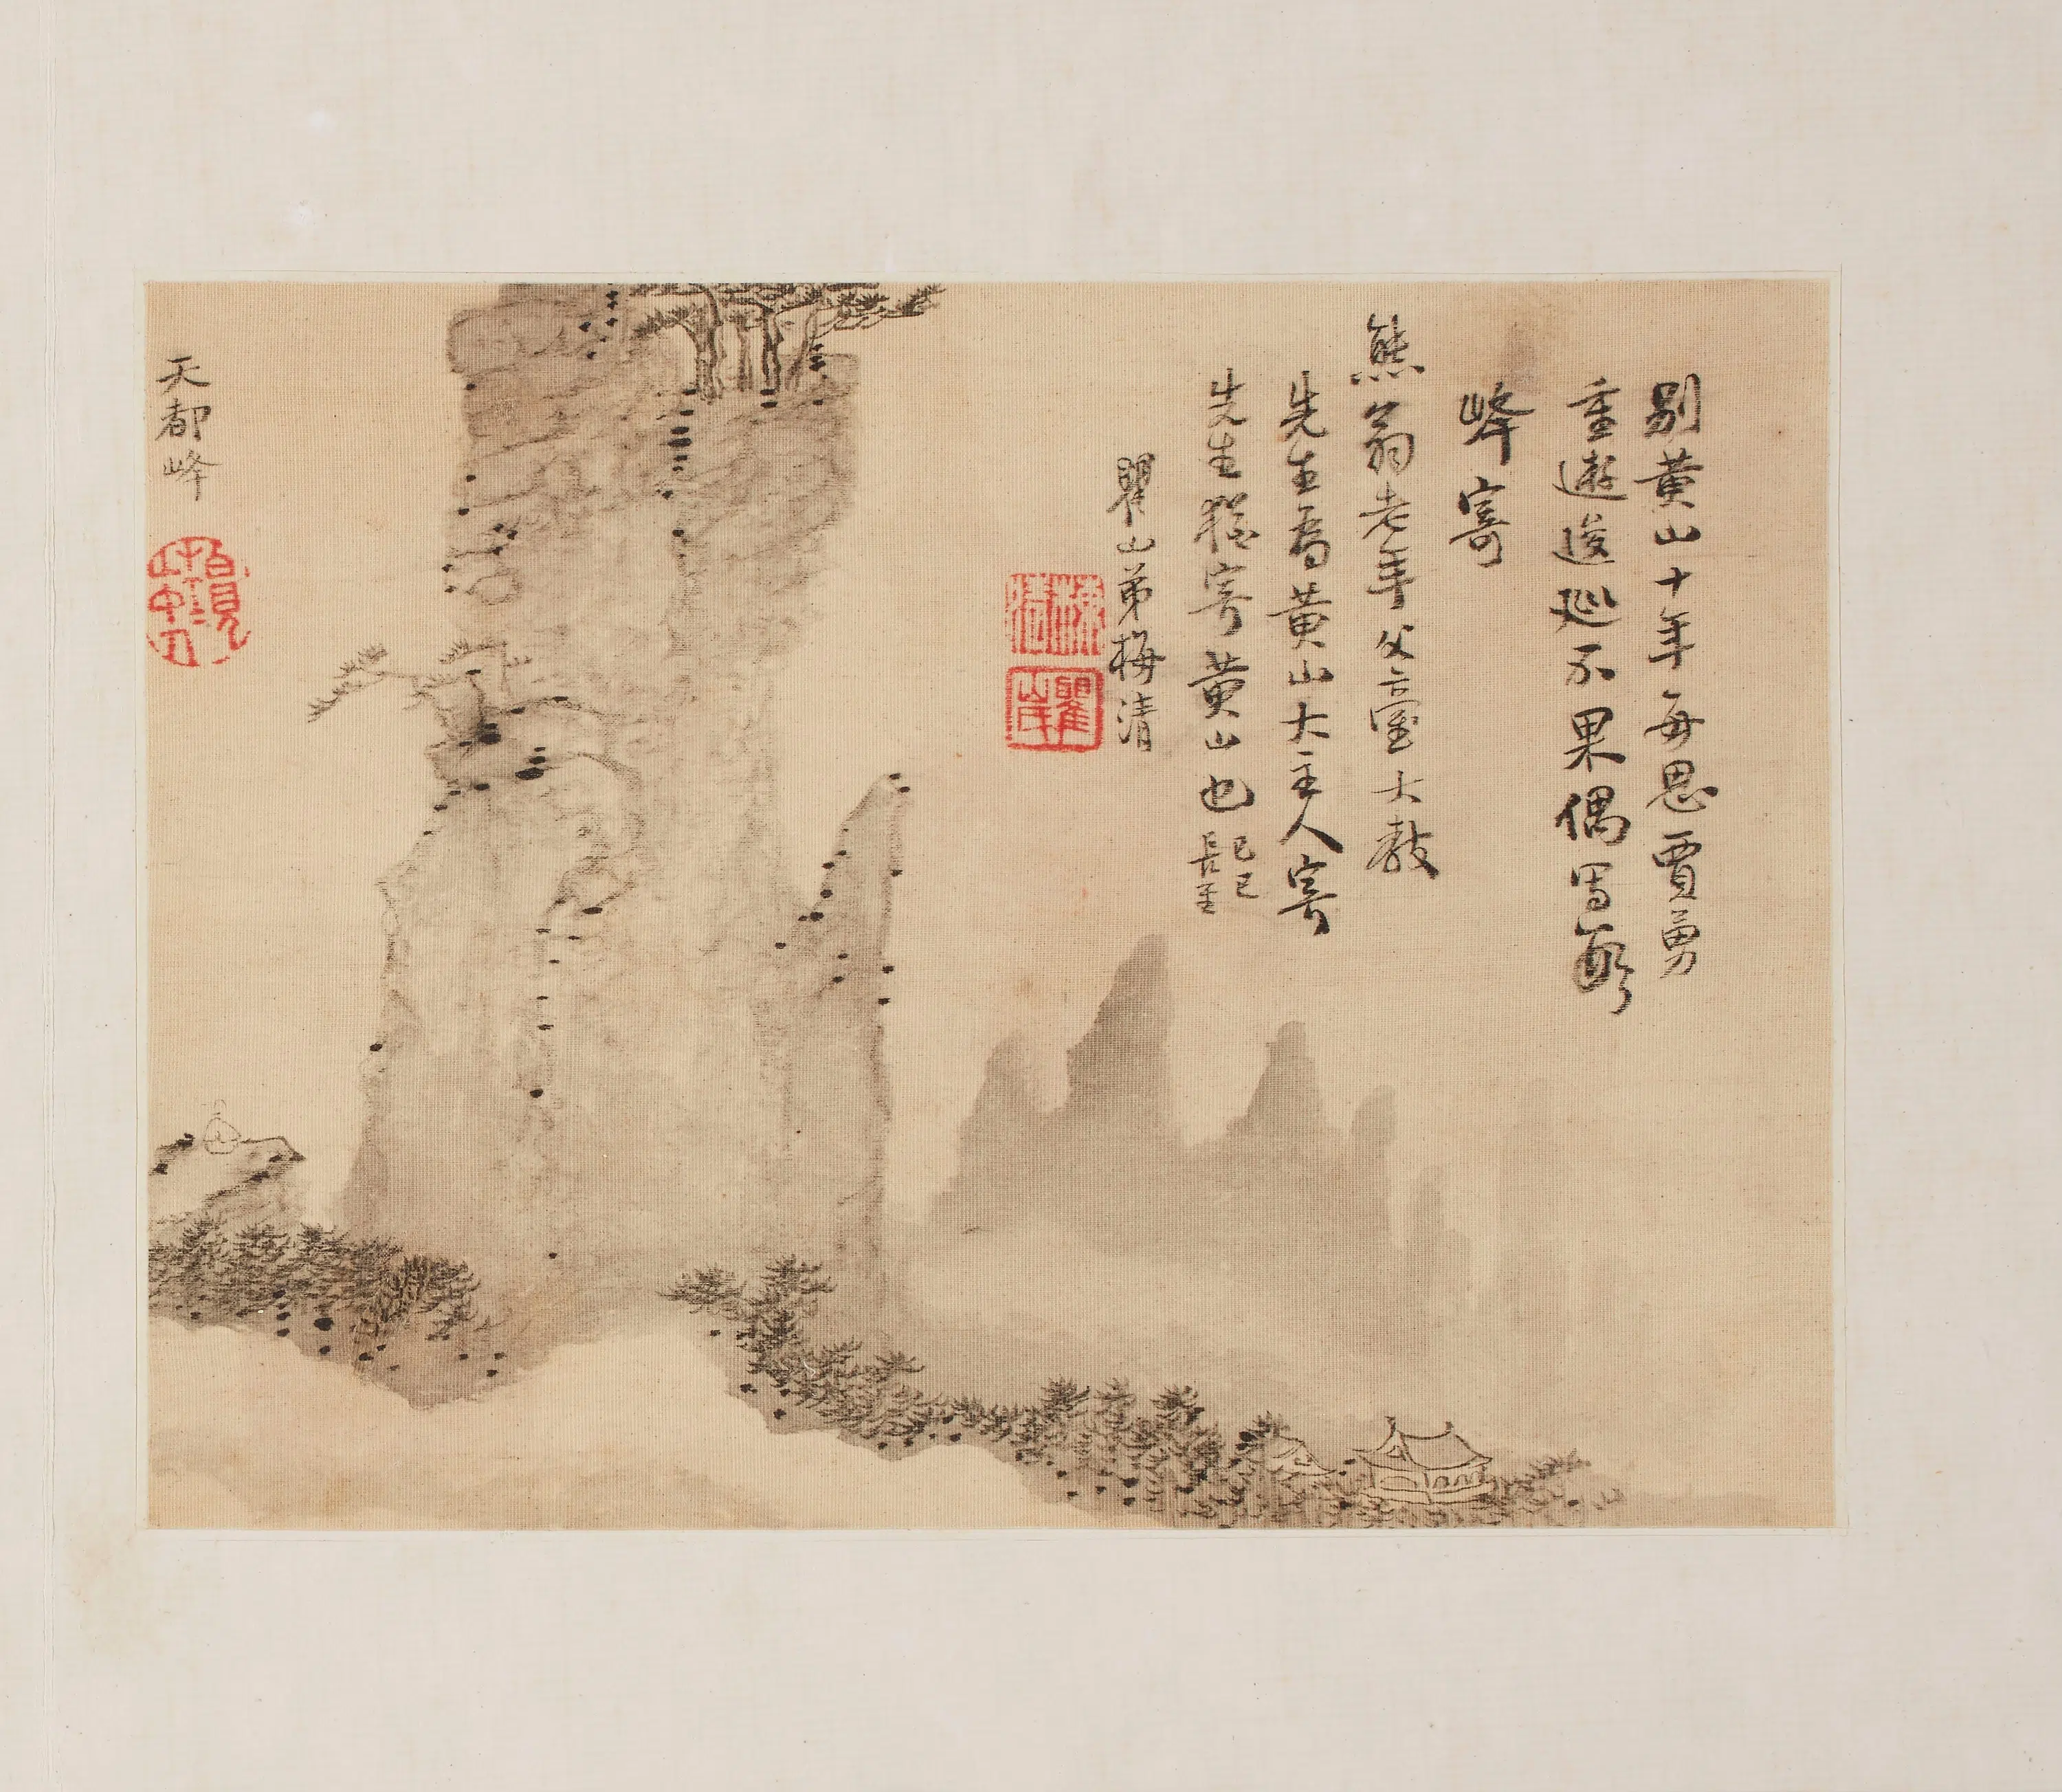 別黃山十年每思賈勇
重遊逡巡不果偶寫數
峰寄
熊翁老年父臺大教
先生為黃山大主人寄
先生猶寄黃山也己巳
長至
瞿山弟梅清
梅清
瞿山
天都峰